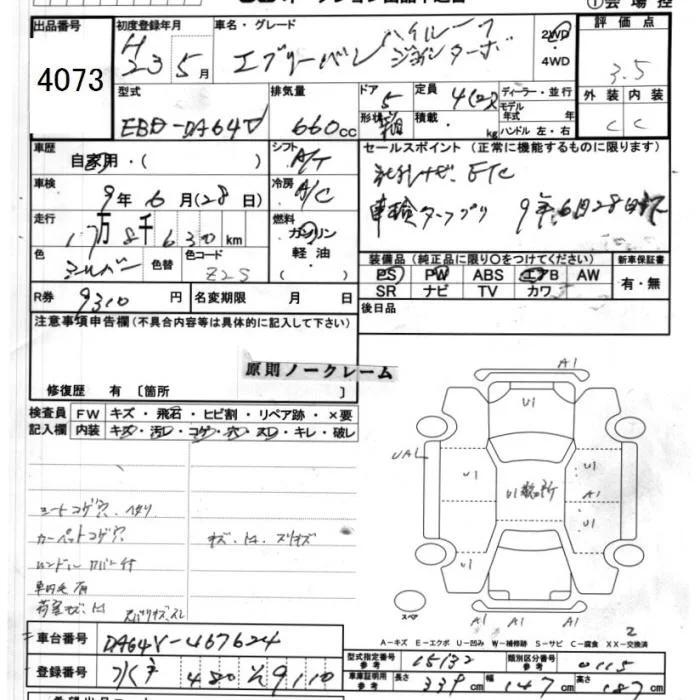 ①会場控
出品番号 初度登録年月 車名・グレード 評価点
4073
H 23年 5月
エブリーバン ハイルーフ ジョインターボ
2WD
4WD
3.5
型式 排気量 ドア 定員 ディーラー・並行
EBD-DA64V 660cc 5 4(2)人
形状 積載 kg
モデル 年式 年
ハンドル 左・右
外装 内装
C C
車歴 自家用・( ) シフト A/T
セールスポイント(正常に機能するものに限ります)
車検 9年 6月(28日) 冷房 A/C
ETC
車検 9年6月28日
走行 17万8千630km 燃料 ガソリン
軽油・( )
色 シルバー 色替 色コード Z2S
装備品(純正品に限り○をつけてください) 新車保証書
PS PW ABS エアB AW 有・無
SR ナビ TV カワ
R券 9310円 名変期限 月 日
後日品
注意事項申告欄(不具合内容等は具体的に記入して下さい)
原則ノークレーム
修復歴 有[箇所 ]
検査員 FW キズ・飛石・ヒビ割・リペア跡・×要
記入欄 内装 キズ・汚レ・コゲ・穴・スレ・キレ・破レ
シートコゲ穴 ヘタリ
カーペットコゲ穴
ハンドル カバー付
車内毛有
A1
U1
UA1
U1 U1
A1
U1
U1
A1 A1 A1
スペア
A-キズ E-エクボ U-凹み W-補修跡 S-サビ C-腐食 XX-交換済
車台番号 DA64V-467624
登録番号 水戸 480 そ 9110
型式指定番号 参考 15132 類別区分番号 参考 0115
車庫証明用 参考 長さ 339cm 幅 147cm 高さ 187cm